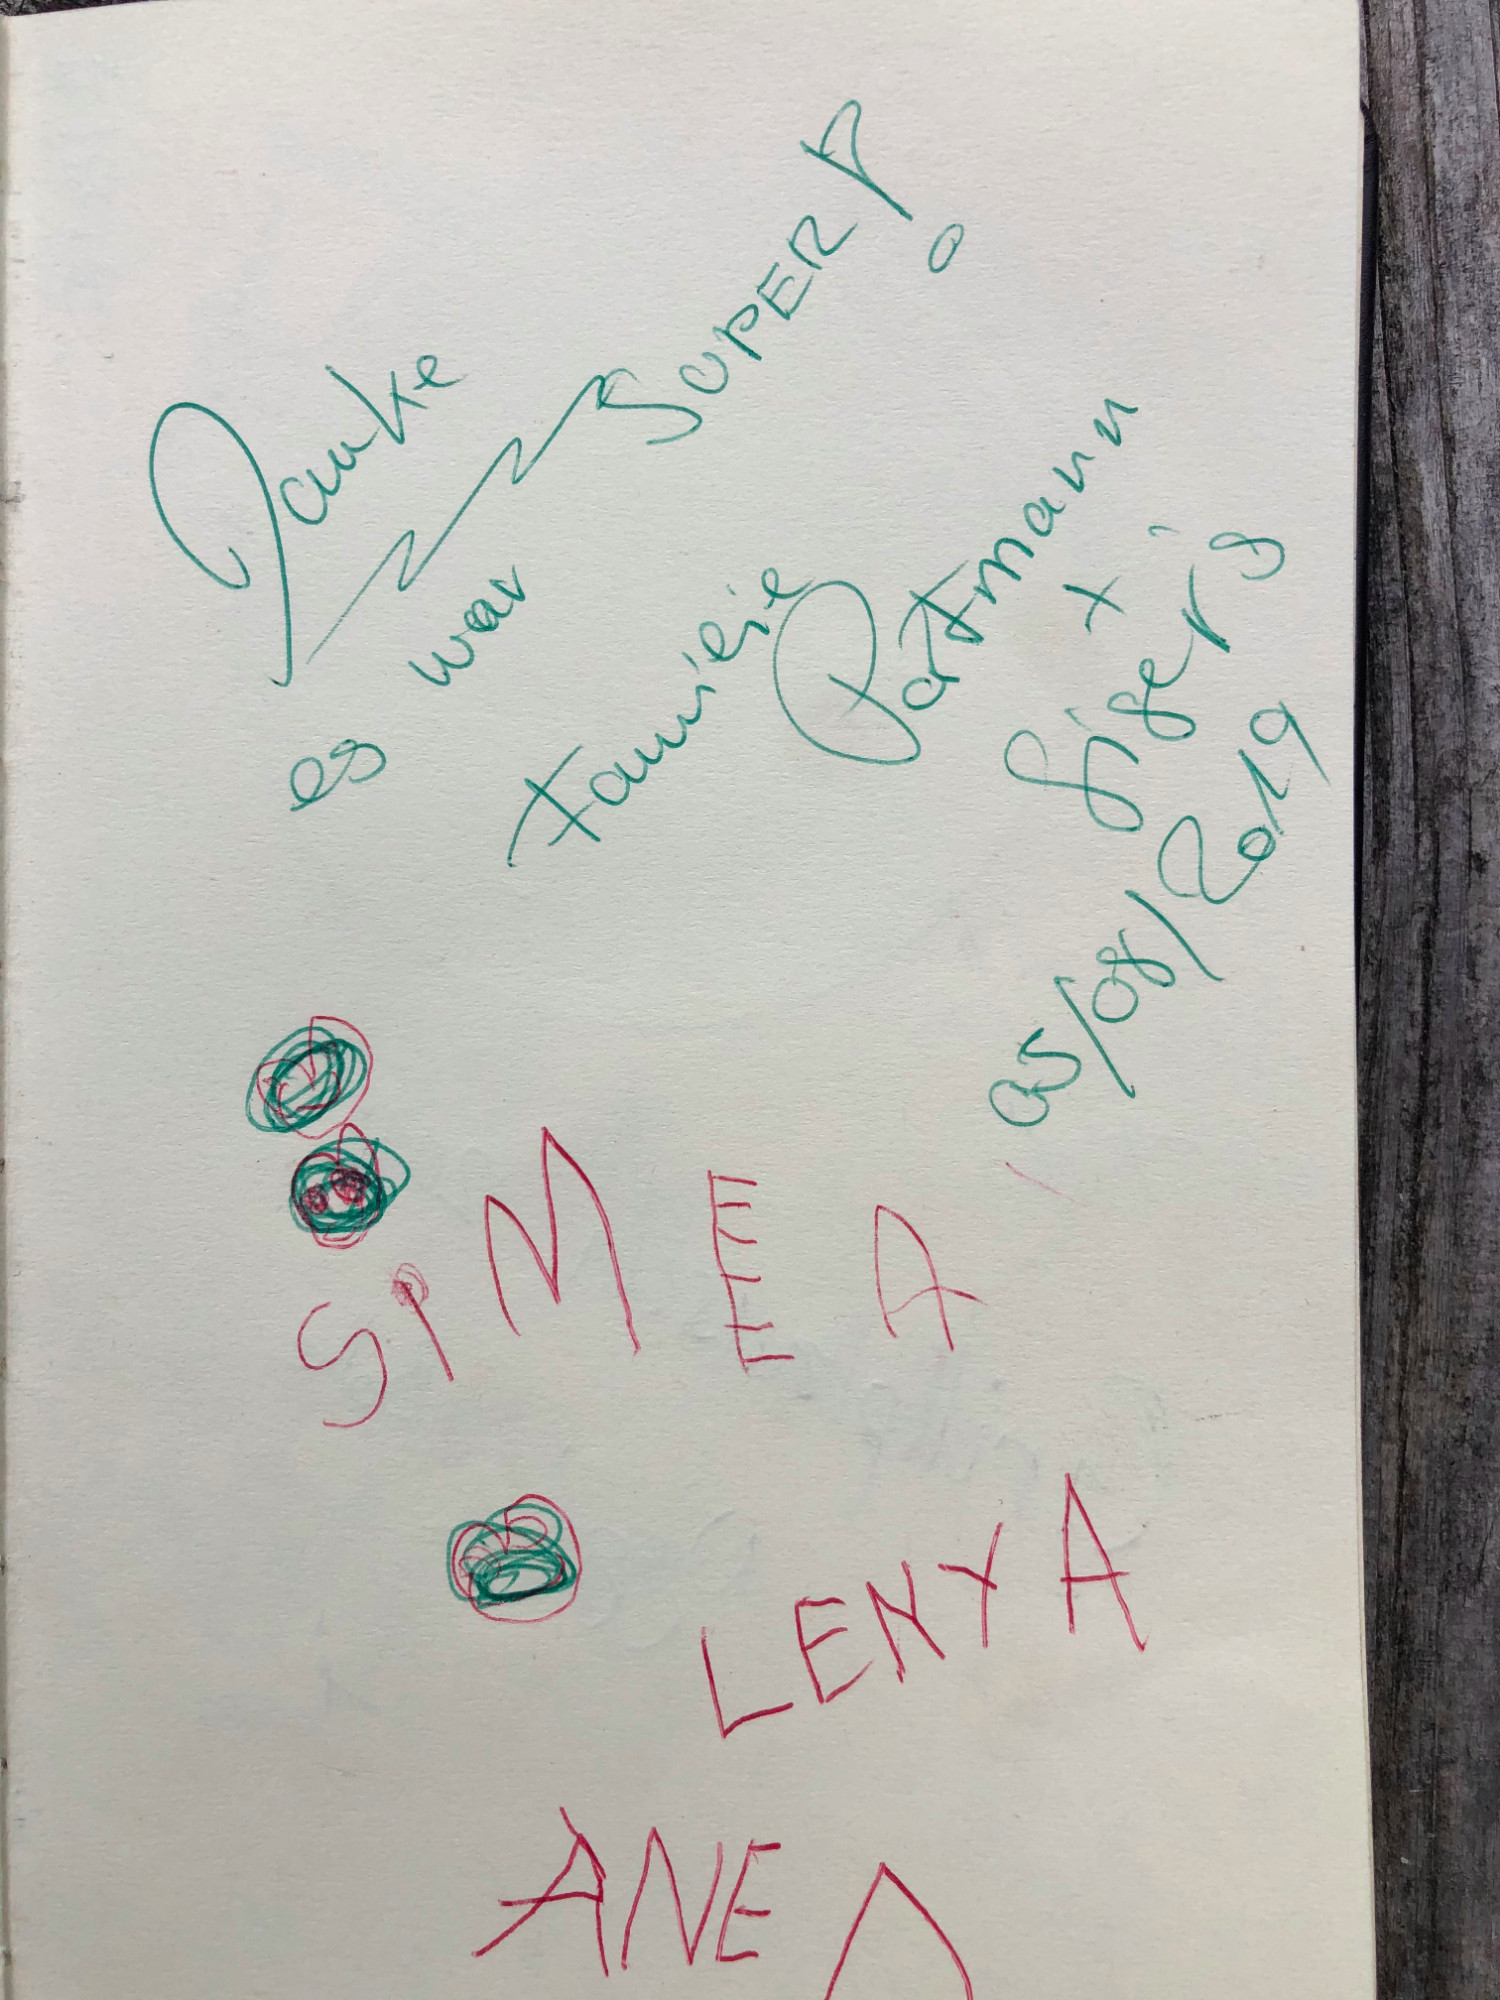 Danke
es war SUPER!
Familie Patmann
+
05/08/2019
SiMEA
LENYA
ANE